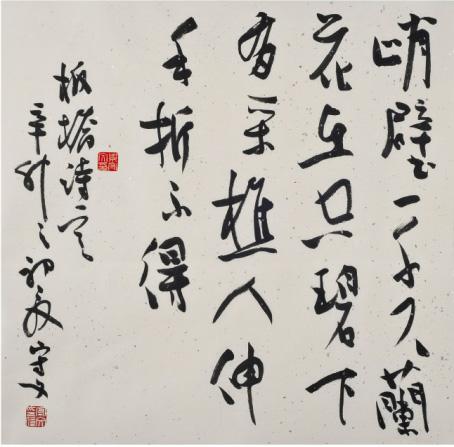 峭壁一千尺蘭
花在空碧下
有采樵人伸
手折不得
板橋詩
辛卯之初夏守文